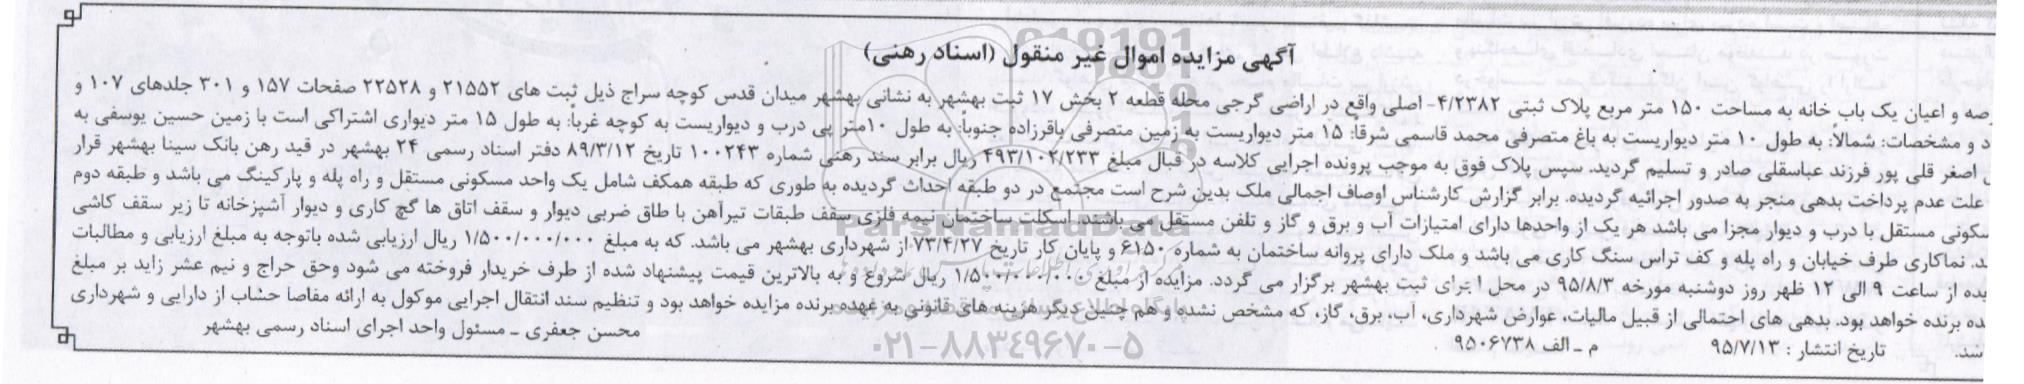 آگهی مزایده اموال غیر منقول (اسناد رهنی)
صه و اعیان یک باب خانه به مساحت ۱۵۰ متر مربع پلاک ثبتی ۴/۲۳۸۲- اصلی واقع در اراضی گرجی محله قطعه ۲ بخش ۱۷ ثبت بهشهر به نشانی بهشهر میدان قدس کوچه سراج ذیل ثبت های ۲۱۵۵۲ و ۲۲۵۲۸ صفحات ۱۵۷ و ۳۰۱ جلدهای ۱۰۷ و
د و مشخصات: شمالاً: به طول ۱۰ متر دیواریست به باغ متصرفی محمد قاسمی شرقا: ۱۵ متر دیواریست به زمین متصرفی باقرزاده جنوباً: به طول ۱۰متر پی درب و دیواریست به کوچه غربا: به طول ۱۵ متر دیواری اشتراکی است با زمین حسین یوسفی به
اصغر قلی پور فرزند عباسقلی صادر و تسلیم گردید. سپس پلاک فوق به موجب پرونده اجرایی کلاسه در قبال مبلغ ۴۹۳/۱۰۴/۲۳۳ ریال برابر سند رهنی شماره ۱۰۰۲۴۳ تاریخ ۸۹/۳/۱۲ دفتر اسناد رسمی ۲۴ بهشهر در قید رهن بانک سینا بهشهر قرار
علت عدم پرداخت بدهی منجر به صدور اجرائیه گردیده. برابر گزارش کارشناس اوصاف اجمالی ملک بدین شرح است مجتمع در دو طبقه احداث گردیده به طوری که طبقه همکف شامل یک واحد مسکونی مستقل و راه پله و پارکینگ می باشد و طبقه دوم
سکونی مستقل با درب و دیوار مجزا می باشد هر یک از واحدها دارای امتیازات آب و برق و گاز و تلفن مستقل می باشند. اسکلت ساختمان نیمه فلزی سقف طبقات تیرآهن با طاق ضربی دیوار و سقف اتاق ها گچ کاری و دیوار آشپزخانه تا زیر سقف کاشی
د. نماکاری طرف خیابان و راه پله و کف تراس سنگ کاری می باشد و ملک دارای پروانه ساختمان به شماره ۶۱۵۰ و پایان کار تاریخ ۷۳/۴/۲۷ از شهرداری بهشهر می باشد. که به مبلغ ۱/۵۰۰/۰۰۰/۰۰۰ ریال ارزیابی شده باتوجه به مبلغ ارزیابی و مطالبات
یده از ساعت ۹ الی ۱۲ ظهر روز دوشنبه مورخه ۹۵/۸/۳ در محل اجرای ثبت بهشهر برگزار می گردد. مزایده از مبلغ ۱/۵۰۰/۰۰۰/۰۰۰ ریال شروع و به بالاترین قیمت پیشنهاد شده از طرف خریدار فروخته می شود وحق حراج و نیم عشر زاید بر مبلغ
ده برنده خواهد بود. بدهی های احتمالی از قبیل مالیات، عوارض شهرداری، آب، برق، گاز، که مشخص نشده و هم چنین دیگر هزینه های قانونی به عهده برنده مزایده خواهد بود و تنظیم سند انتقال اجرایی موکول به ارائه مفاصا حساب از دارایی و شهرداری
شد. تاریخ انتشار : ۹۵/۷/۱۳ م ـ الف ۹۵۰۶۷۳۸ محسن جعفری ـ مسئول واحد اجرای اسناد رسمی بهشهر
ParsNamadData
۰۲۱-۸۸۳۴۹۶۷۰-۵